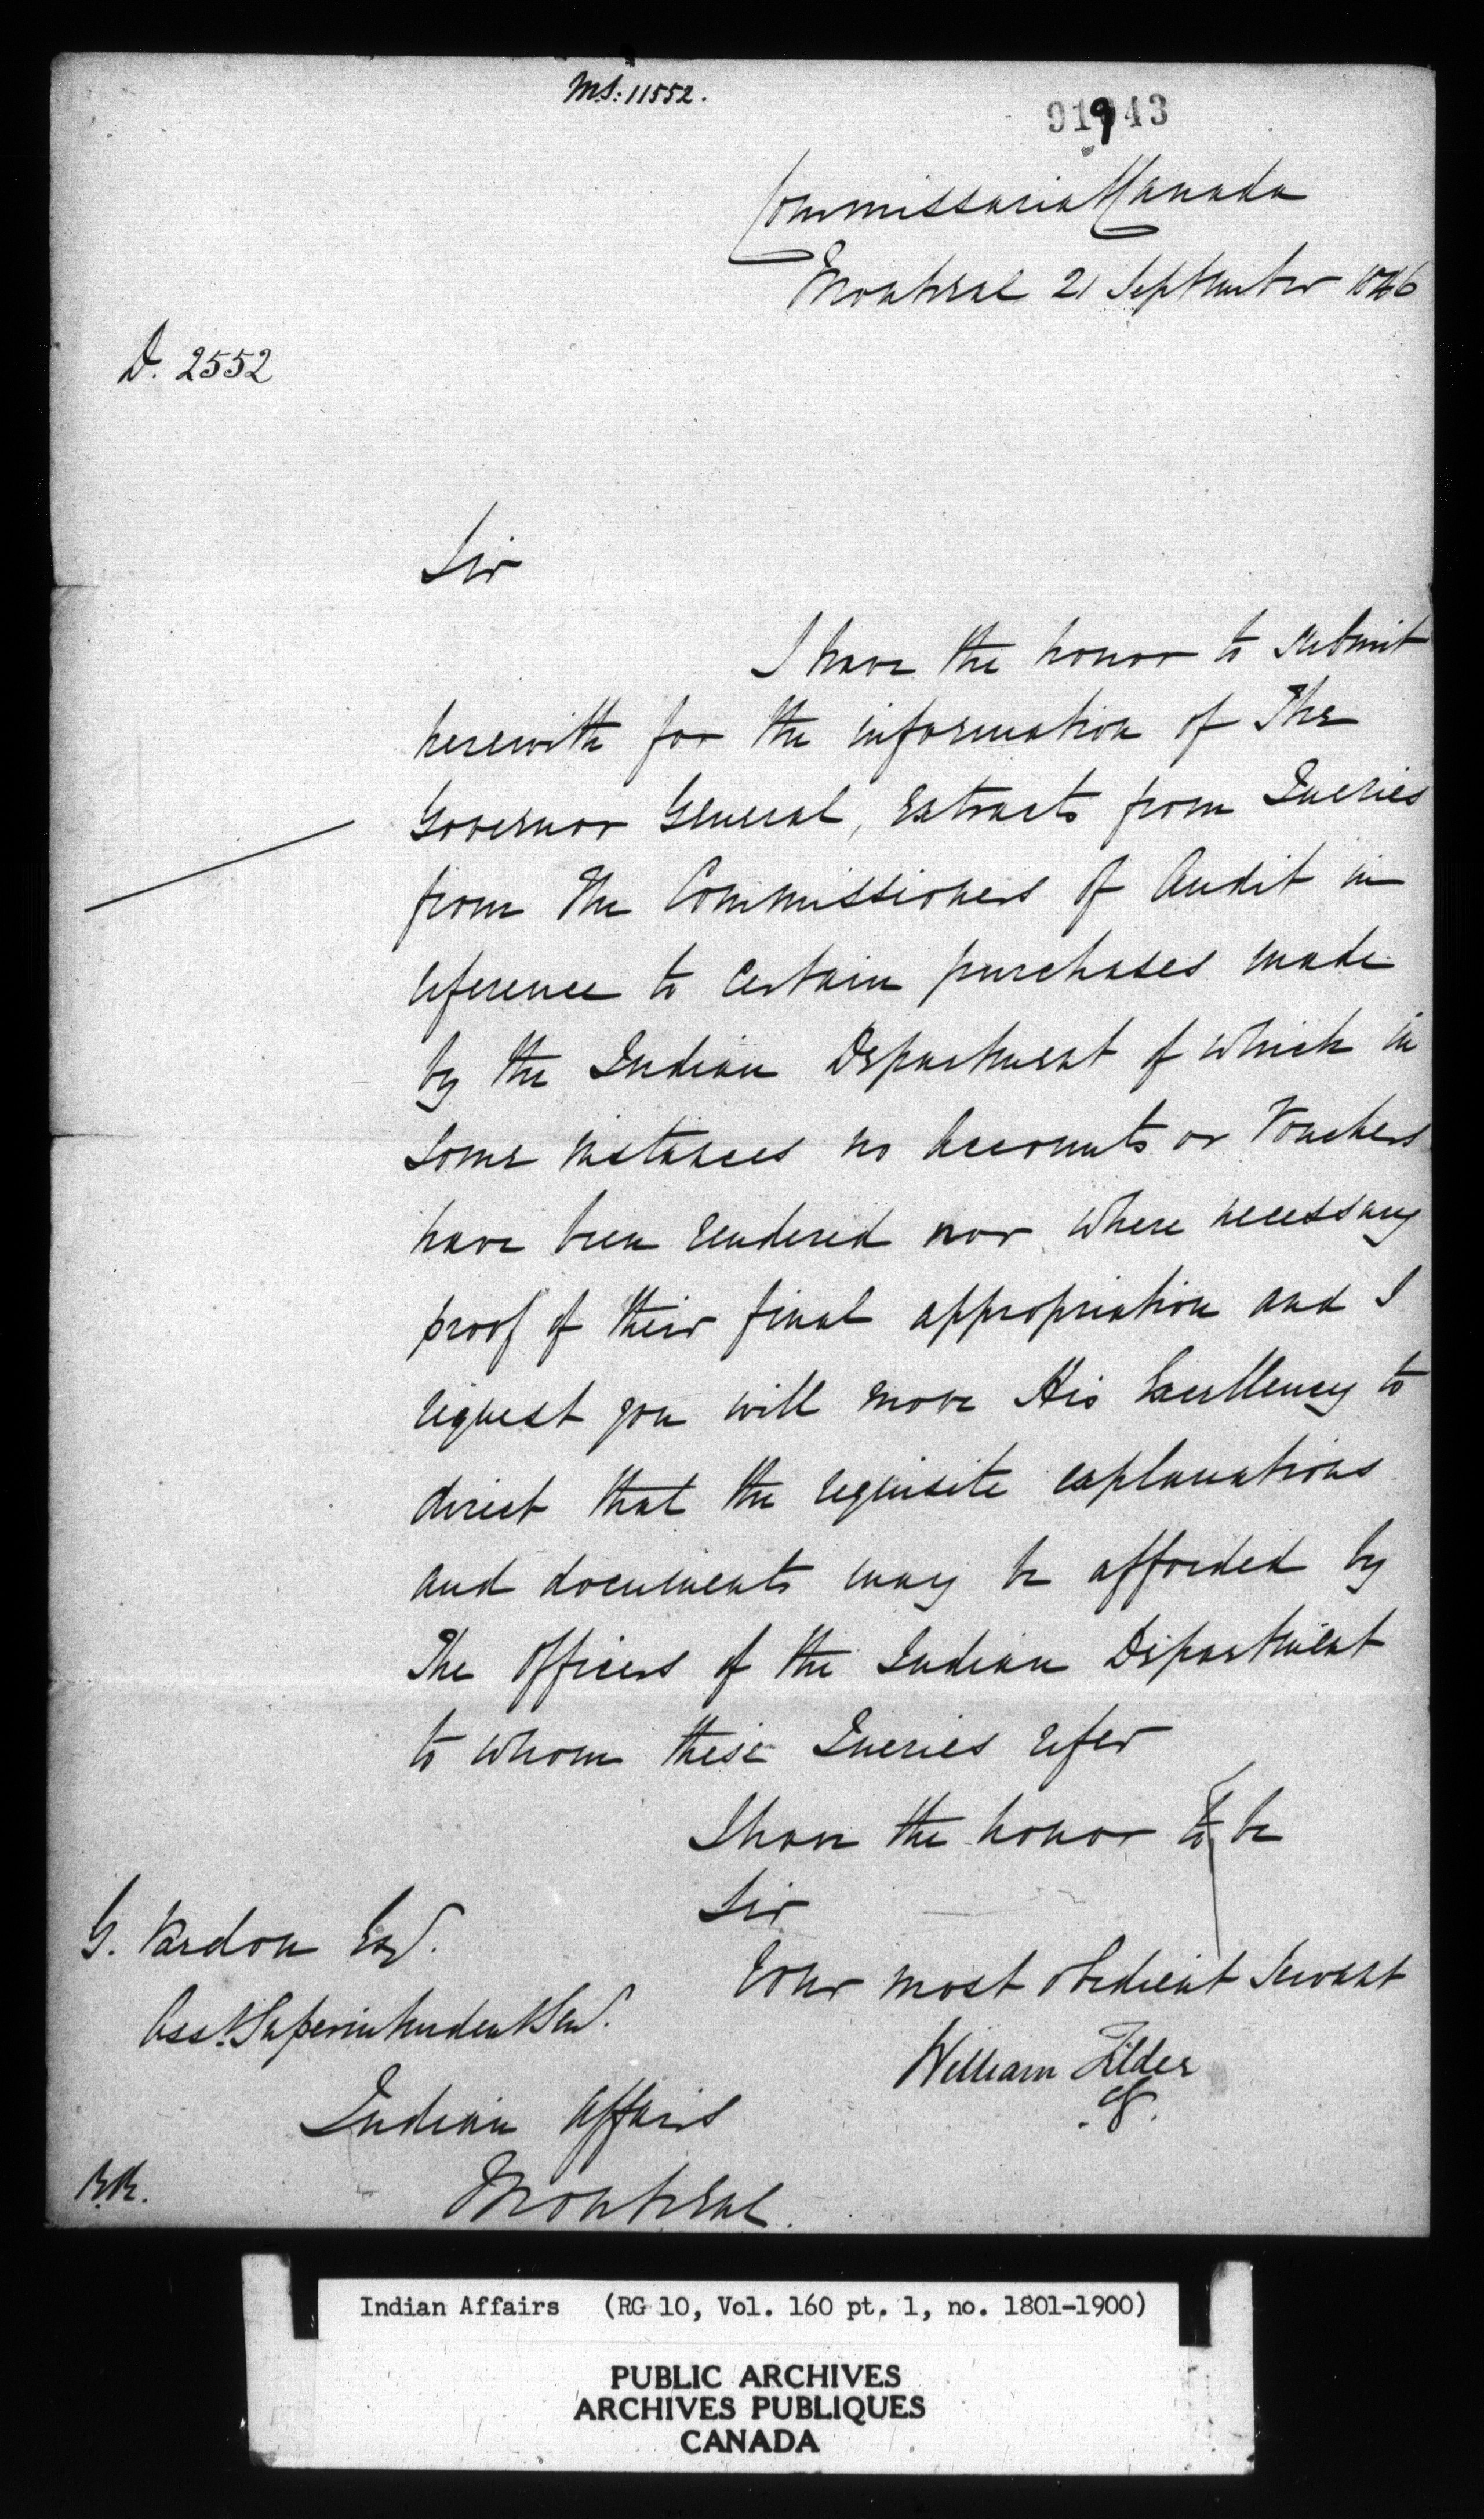 MS: 11552.
91943
Commissariat Canada
Montreal 21 September 1846
D. 2552
Sir
I have the honor to submit
herewith for the information of The
Governor General, extracts from Queries
from the Commissioners of Audit in
reference to certain purchases made
by the Indian Department of which in
some instances no Accounts or Vouchers
have been rendered nor where necessary
proof of their final appropriation and I
request you will move His Excellency to
direct that the requisite explanations
and documents may be afforded by
The Officers of the Indian Department
to whom these Queries refer
I have the honor to be
Sir
Your most obedient Servant
William Filder
G. Vardon Esq.
Asst. Superintendent Genl.
Indian Affairs
Montreal.
Indian Affairs (RG 10, Vol. 160 pt. 1, no. 1801-1900)
PUBLIC ARCHIVES
ARCHIVES PUBLIQUES
CANADA